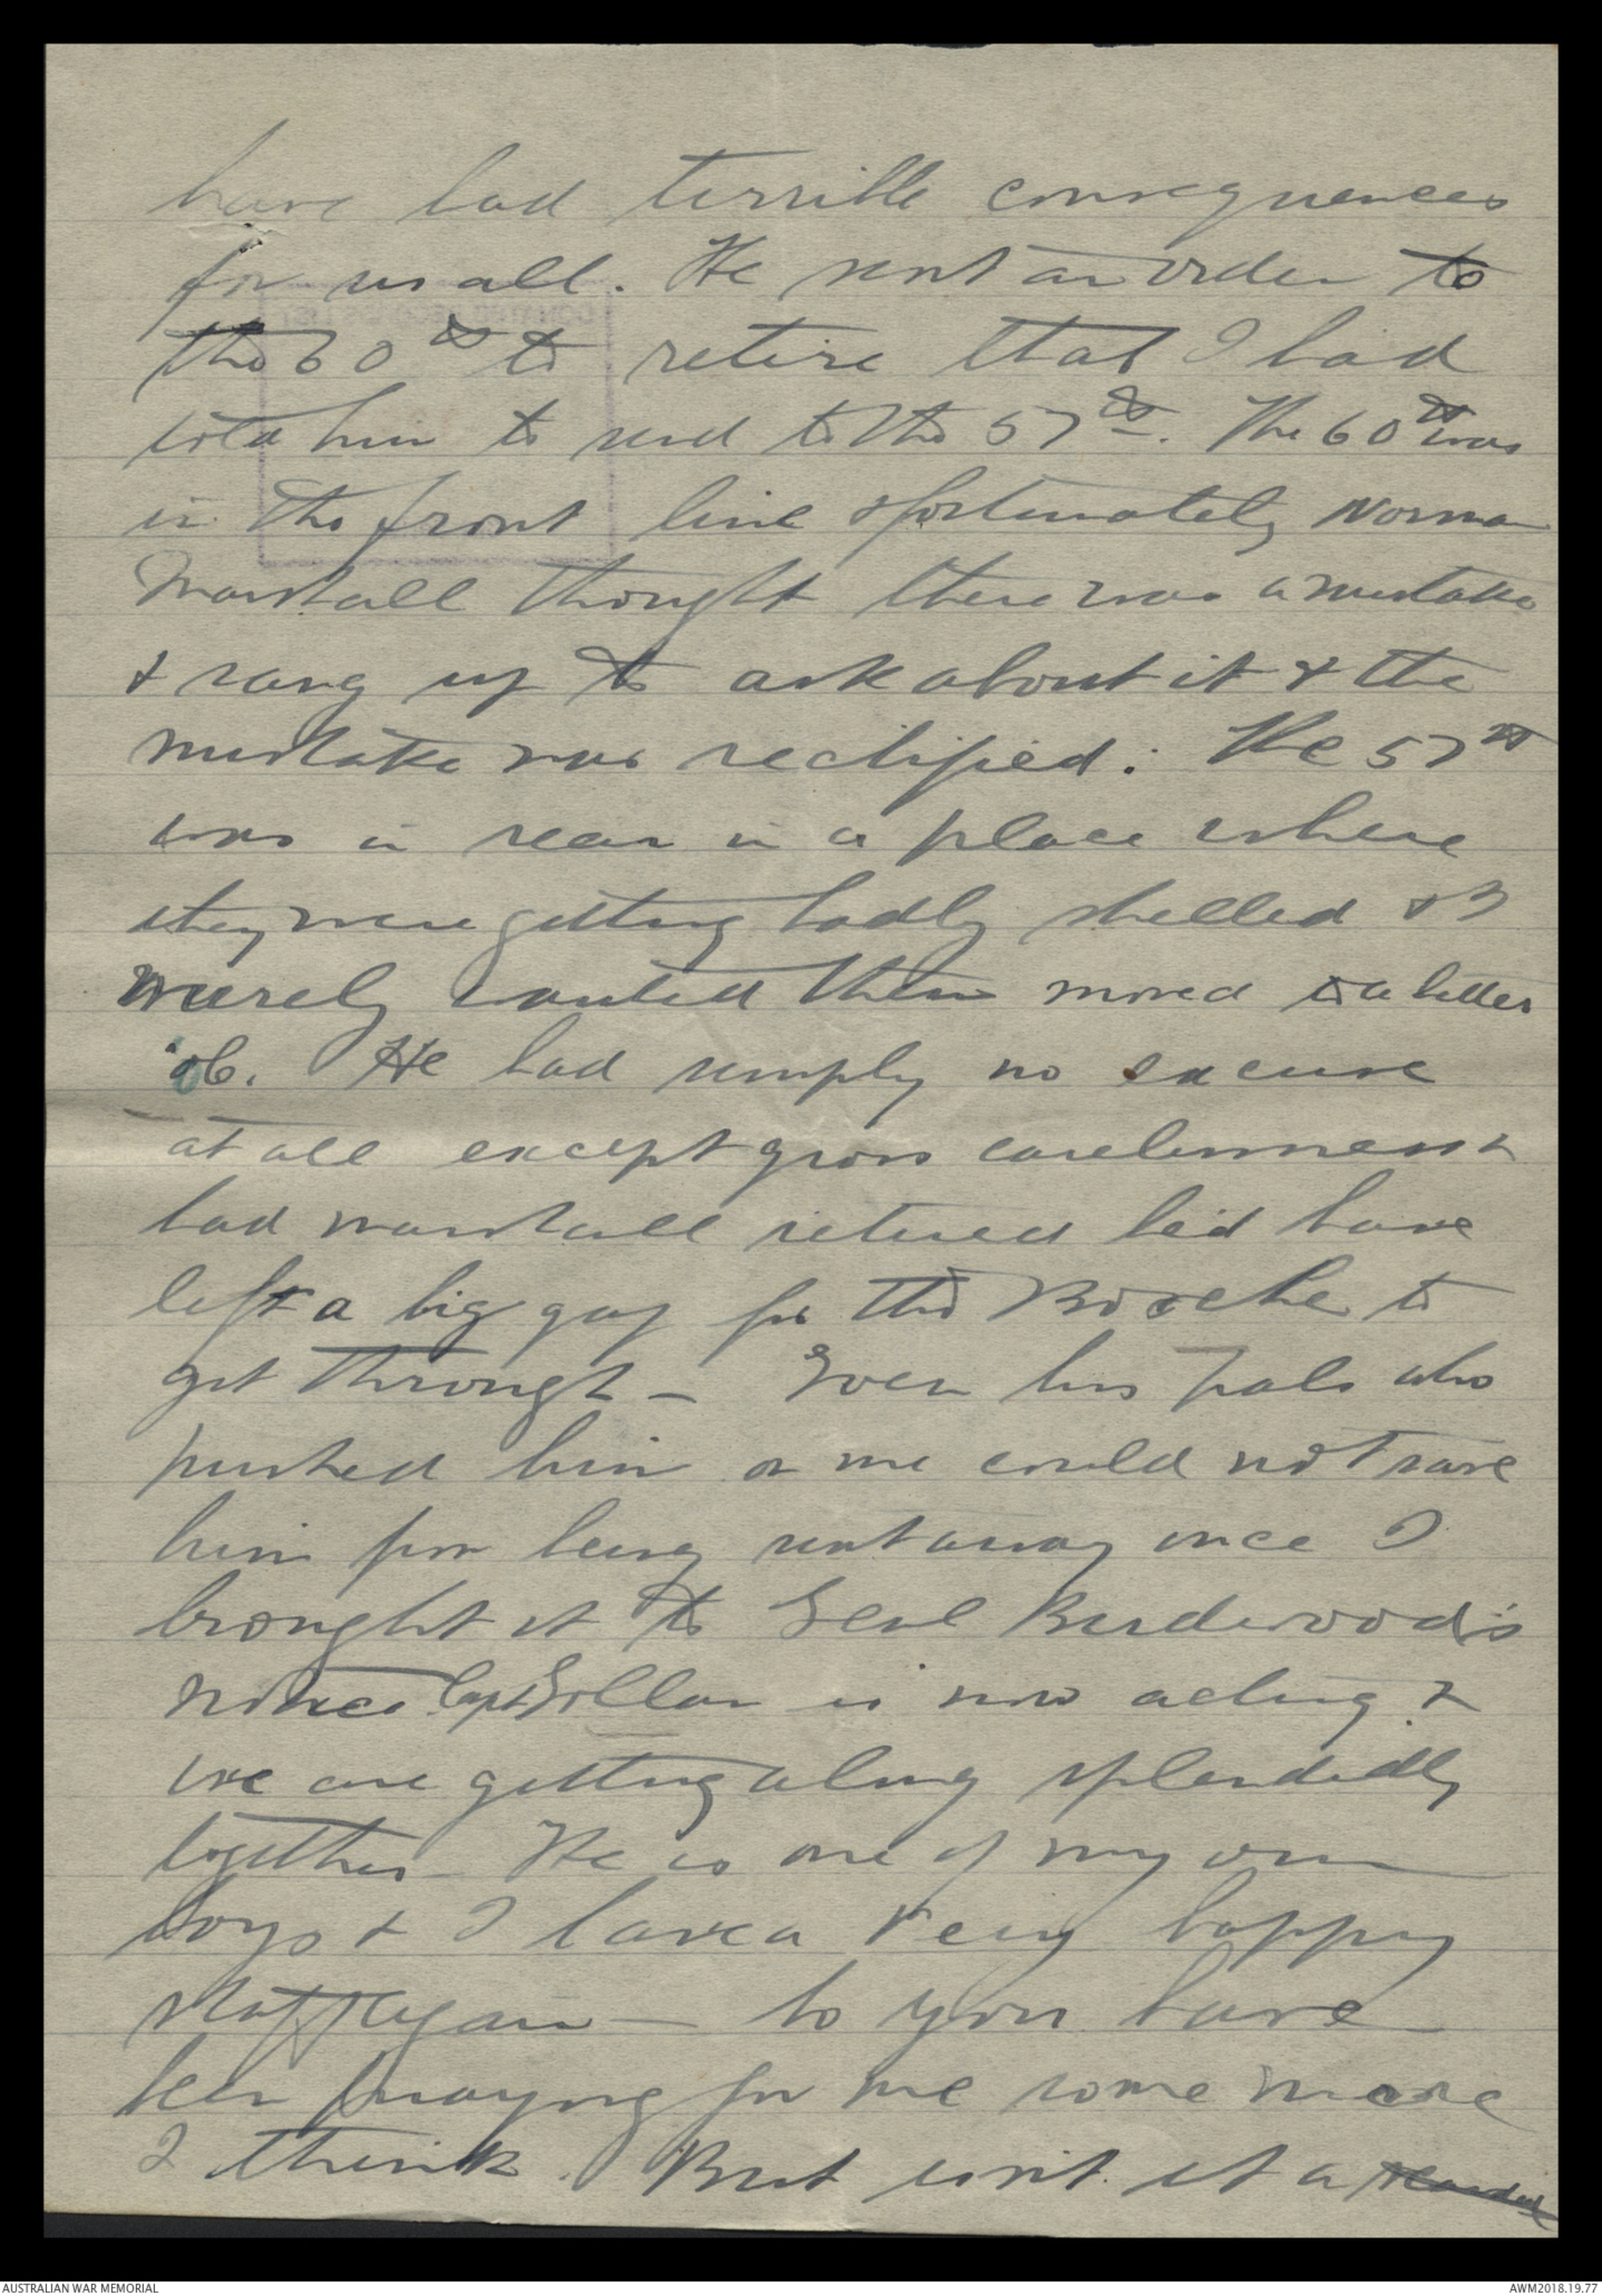 have had terrible consequences
for us all. He sent an order to
the 60th to retire that I had
told him to send to the 57th. The 60th was
in the front line & fortunately Norman
Marshall thought there was a mistake
& rang up to ask about it & the
mistake was rectified. The 57th
was in rear in a place where
they were getting badly shelled & I
merely wanted them moved to a better
'ob. He had simply no excuse
at all except gross carelessness &
had marshall retired he'd have
left a big gap for the Bosche to
get through - Even his pals who
pushed him on me could not save
him from being sent away once I
brought it to Genl Birdwood's
notice. Capt Gollan is now acting &
we are getting along splendidly
together - He is one of my own
boys & I have a very happy
staff again - so you have
been praying for me some more
I think. But isn't it a
AUSTRALIAN WAR MEMORIAL
AWM2018.19.77